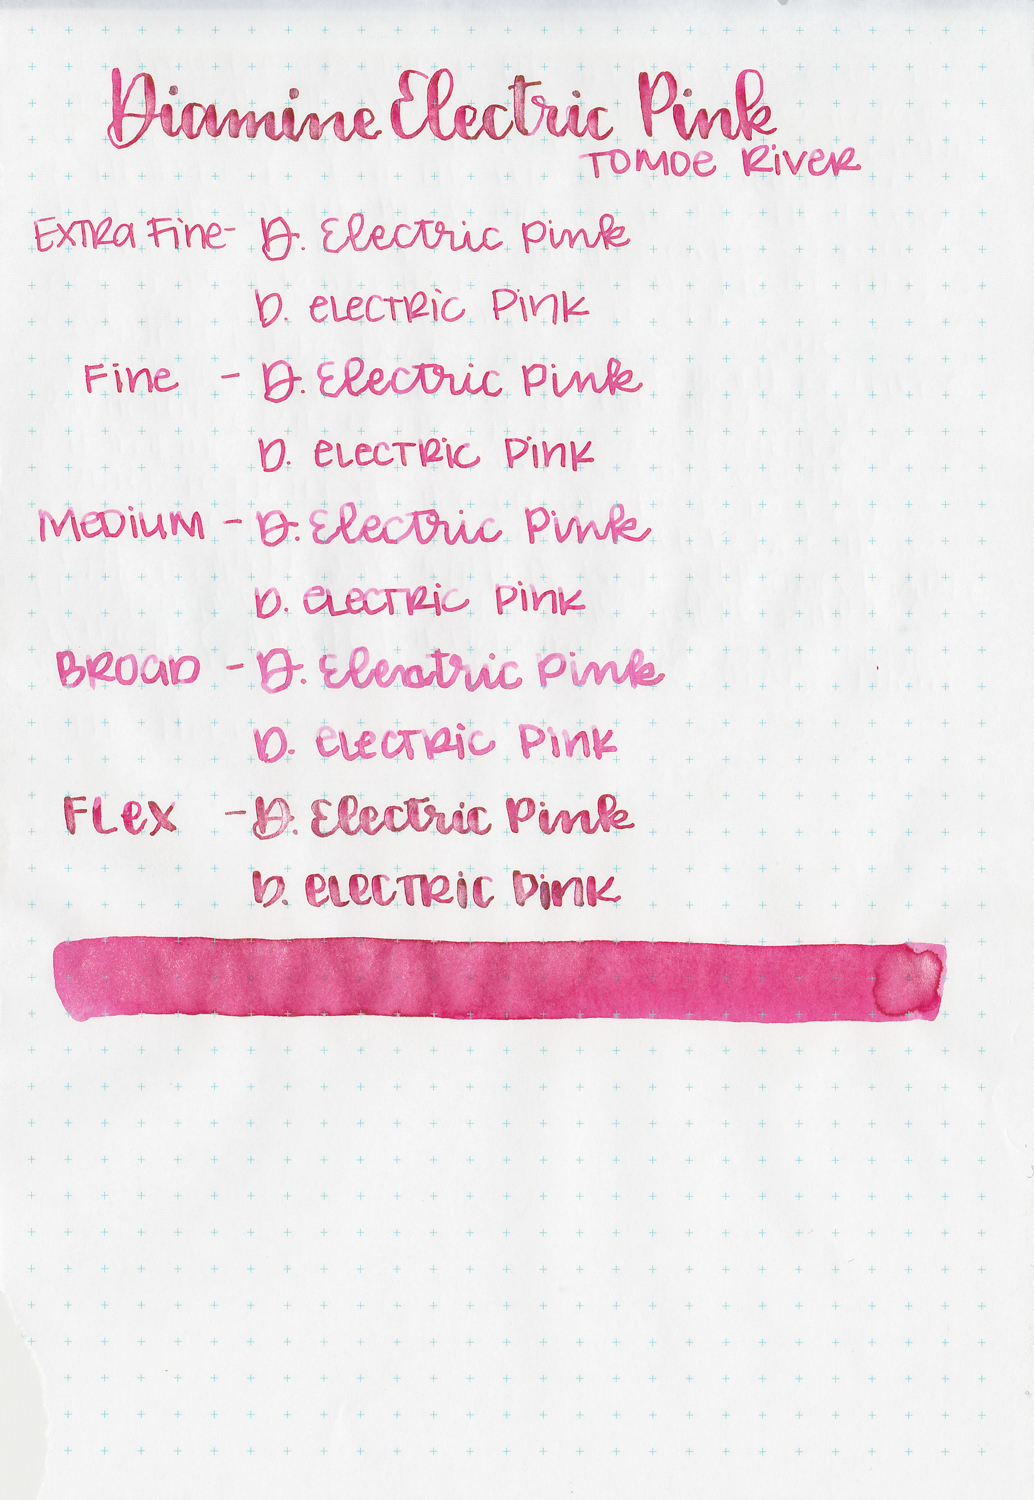 Diamine Electric Pink
TOMOE RIVER
EXTRA Fine - D. Electric Pink
D. ELECTRIC PINK
Fine - D. Electric Pink
D. ELECTRIC PINK
MEDIUM - D. Electric Pink
D. ELECTRIC PINK
BROAD - D. Electric Pink
D. ELECTRIC PINK
FLEX - D. Electric Pink
D. ELECTRIC PINK